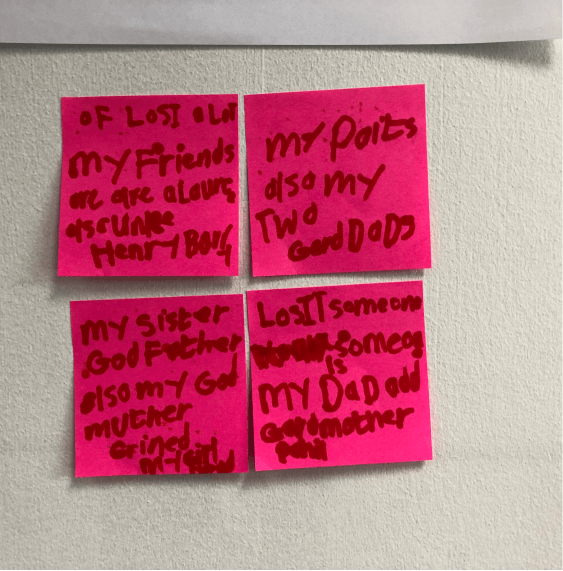 OF LOST a LOT
my Friends
are are alours
also Unlee
Henry Barry
my Paits
also my
Two
Gard DaDS
my sister
God Fother
also my God
muther
Grined
my Girl
LOSIT someone
someog
is
MY DaD add
Gardmother